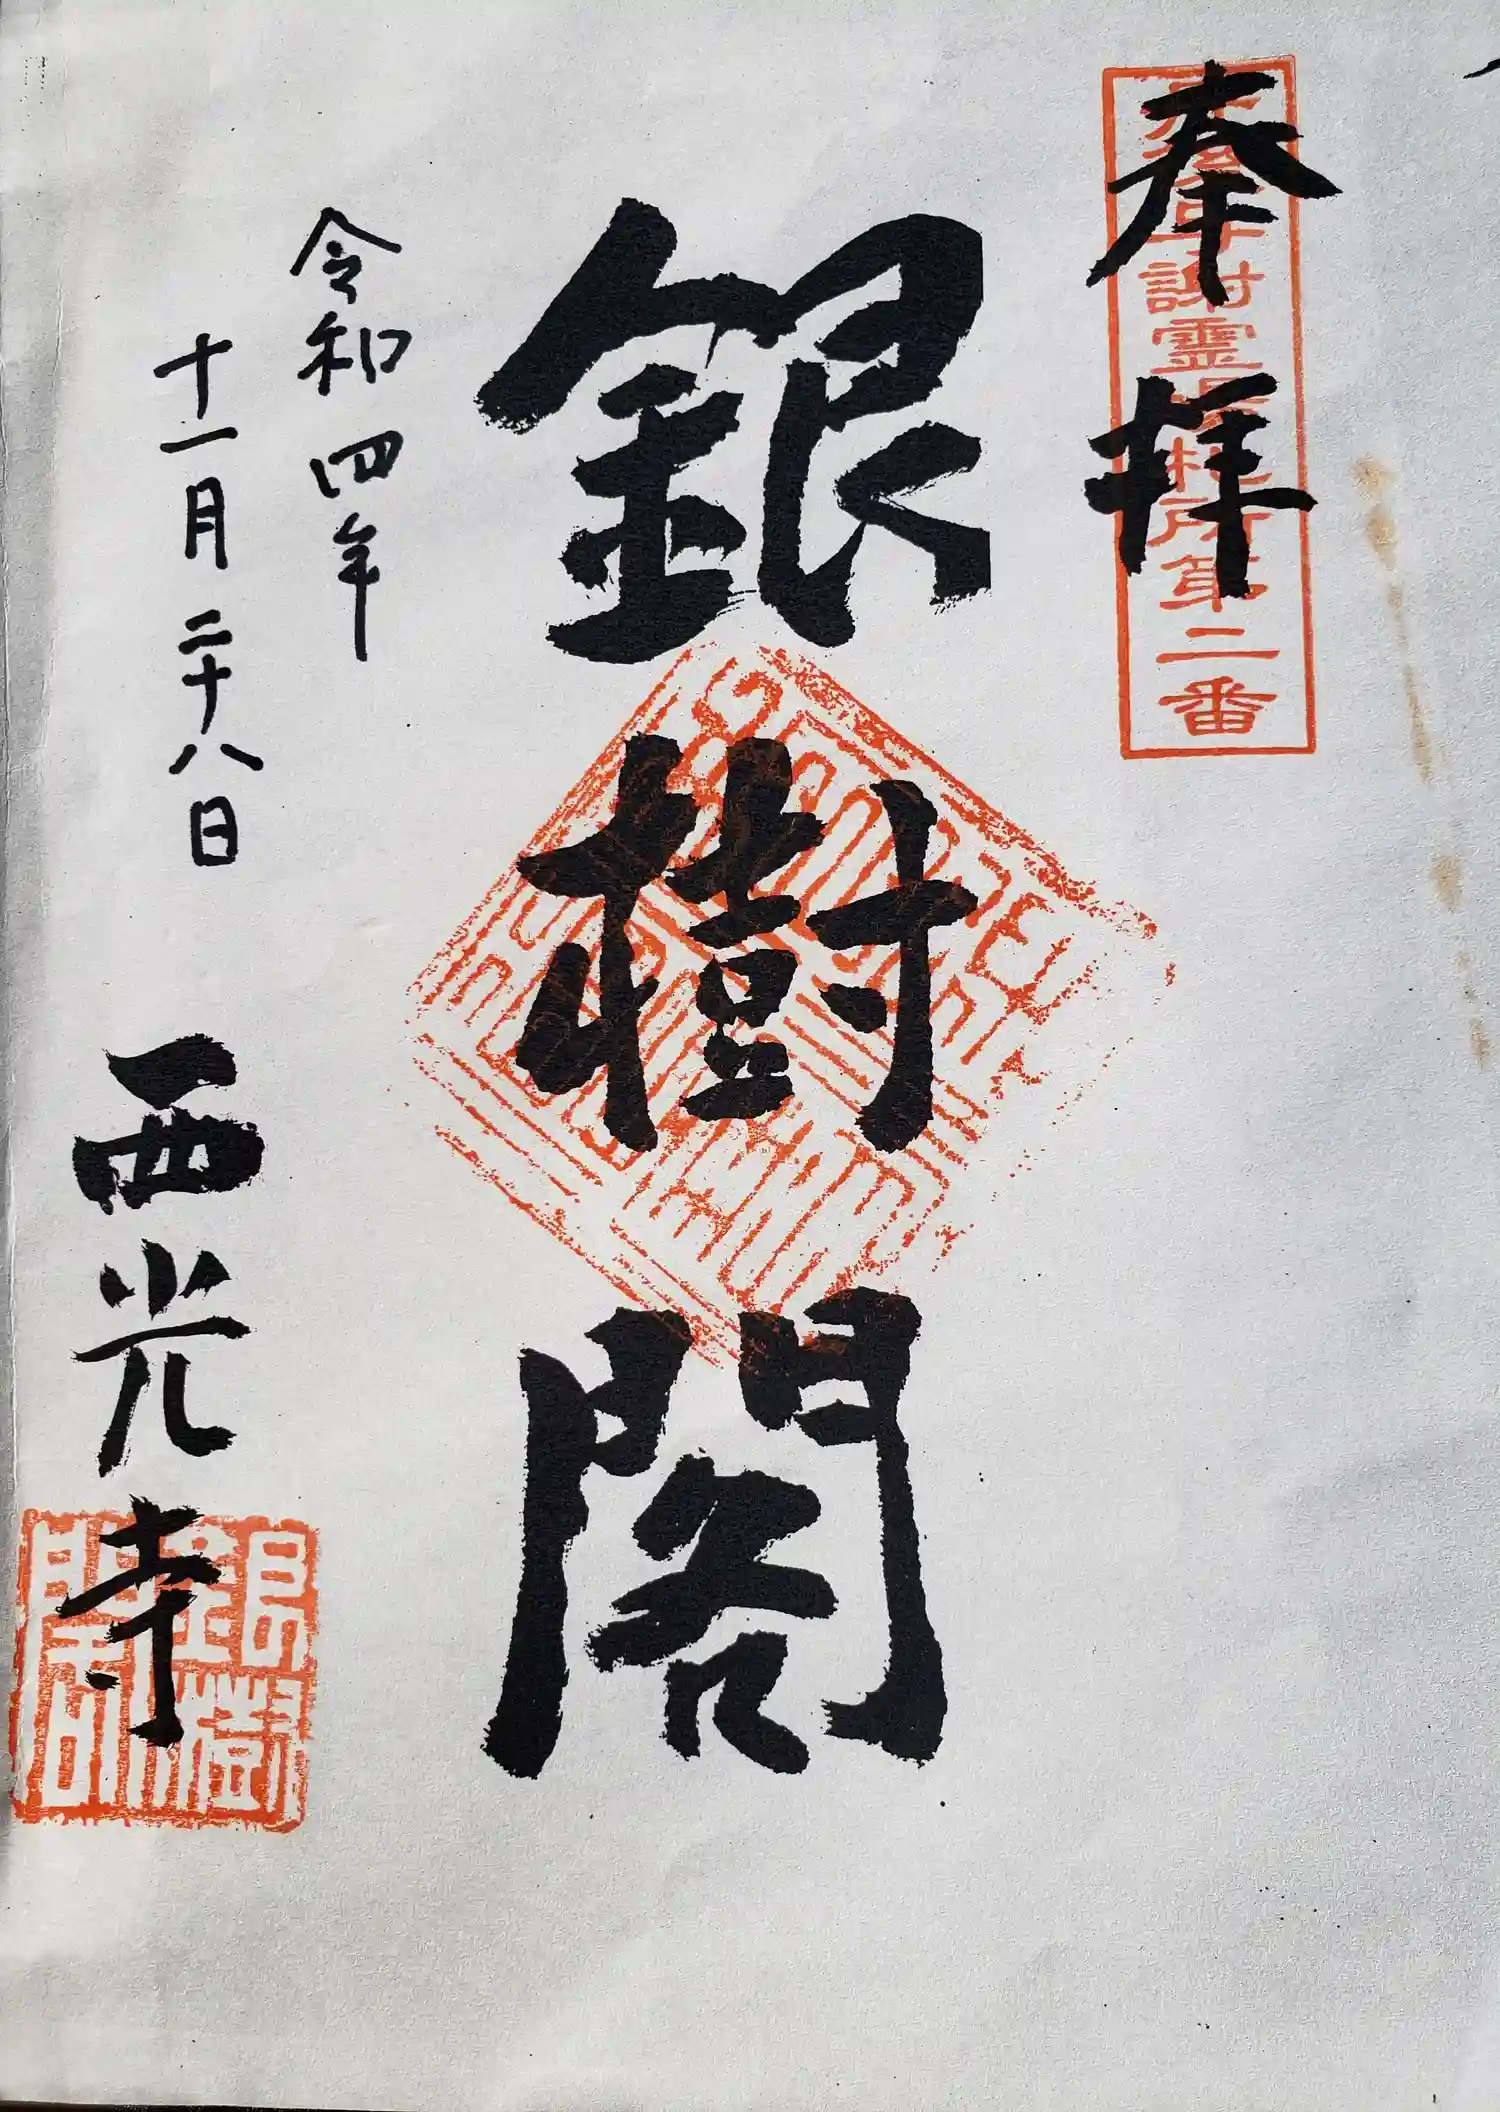 奉拝
謝霊場札所第二番
銀樹閣
令和四年
十一月二十八日
西光寺
銀樹閣